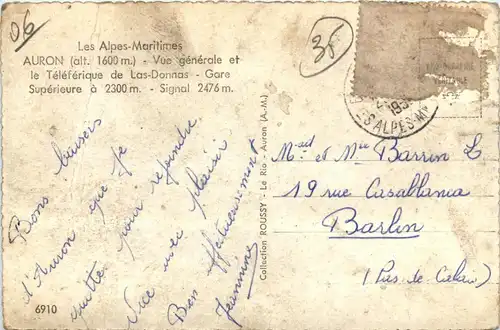 06
3F
Les Alpes-Maritimes
AURON (alt. 1600 m.) - Vue générale et
le Téléférique de Las-Donnas - Gare
Supérieure à 2300 m. - Signal 2476 m.
Bons baisers
d'Auron que je
quitte pour rejoindre
Nice avec plaisir
Bien affectueusement
Jeannine
6910
Collection ROUSSY - Le Rio - Auron (A.-M.)
ES ALPES-Mme
Mad et Mlle Barrin L
19 rue Casablanca
Barlin
(Pas de Calais)